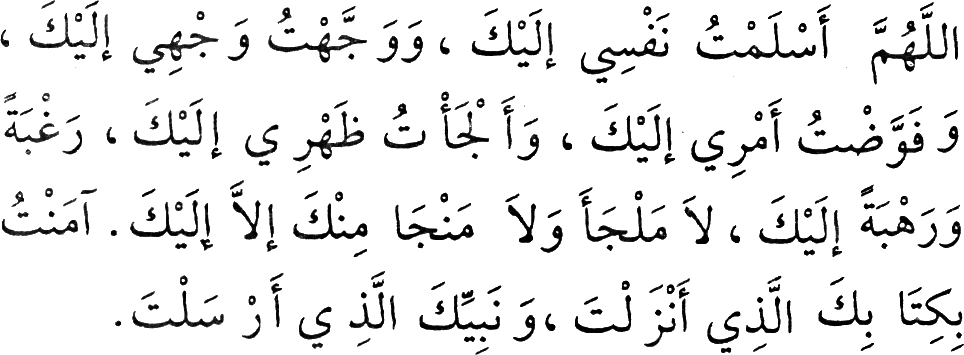 اللَّهُمَّ أَسْلَمْتُ نَفْسِي إِلَيْكَ ، وَوَجَّهْتُ وَجْهِي إِلَيْكَ ،
وَفَوَّضْتُ أَمْرِي إِلَيْكَ ، وَأَلْجَأْتُ ظَهْرِي إِلَيْكَ ، رَغْبَةً
وَرَهْبَةً إِلَيْكَ ، لاَ مَلْجَأَ وَلاَ مَنْجَا مِنْكَ إِلاَّ إِلَيْكَ . آمَنْتُ
بِكِتَابِكَ الَّذِي أَنْزَلْتَ ، وَنَبِيِّكَ الَّذِي أَرْسَلْتَ .